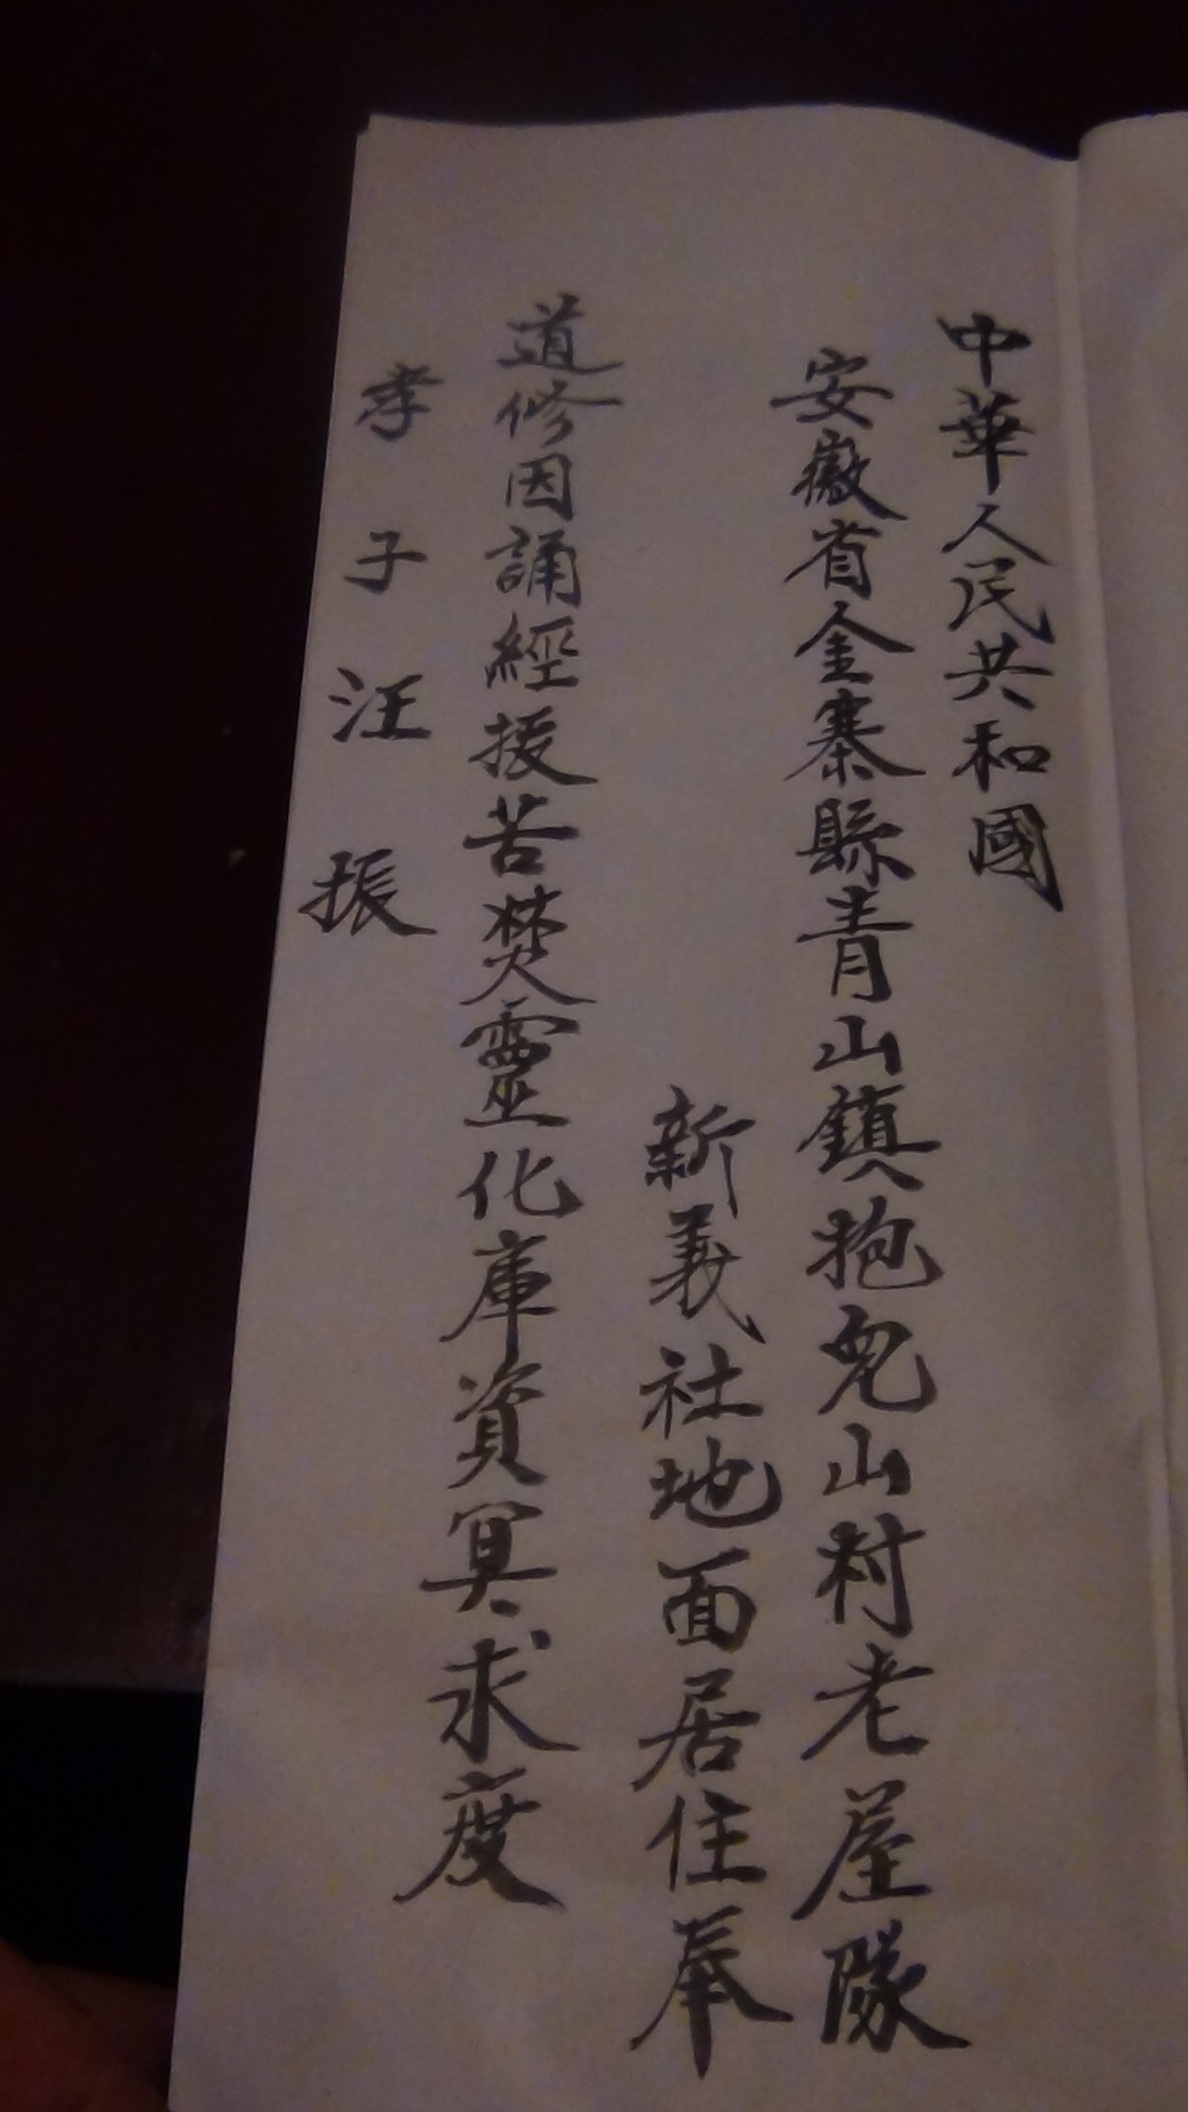 中華人民共和國
安徽省金寨縣青山鎮抱兒山村老屋隊
新義社地面居住奉
道修因誦經援苦焚靈化庫資冥求度
孝子汪振